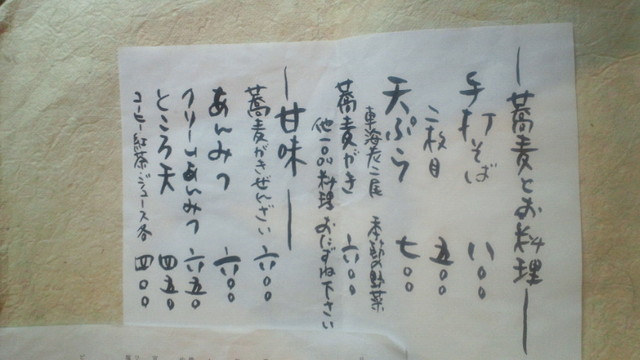 蕎麦とお料理
手打そば 八〇〇
二枚目 五〇〇
天ぷら 七〇〇
車海老二尾 季節の野菜
蕎麦がき 六〇〇
他一品料理 おたずね下さい
甘味
蕎麦がきぜんざい 六〇〇
あんみつ 六〇〇
クリームあんみつ 六五〇
ところ天 四五〇
コーヒー・紅茶・ジュース各 四〇〇